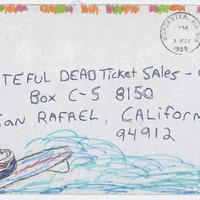 WORCESTER, MA
PM
3 MAY
1985
TEFUL DEAD Ticket Sales -
Box C-S 8150
SAN RAFAEL, CALIFOR
94912